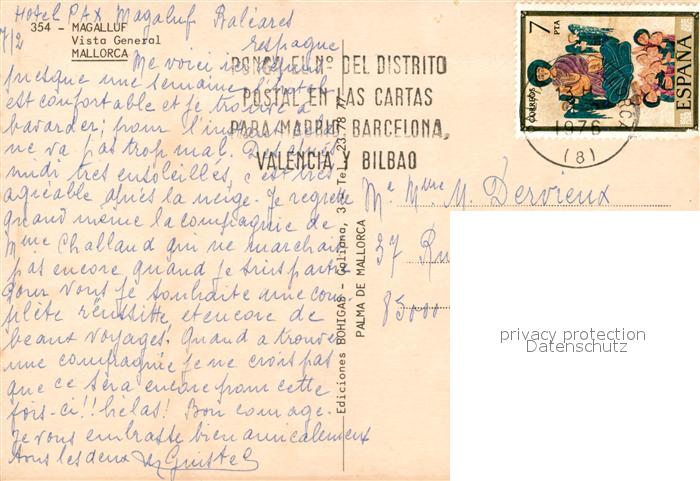 Hotel PAX Magaluf Baléares
7/2
354 - MAGALLUF
Vista General
MALLORCA
Espagne
Me voici ici depuis
presque une semaine. L'hôtel
est confortable et je trouve à
bavarder; pour l'instant
ne va pas trop mal.
midi très ensoleillés, c'est très
agréable après la neige. Je regrette
quand même la compagnie de
Mme Challand qui ne marchait
pas encore quand je suis partie
Pour vous je souhaite une com
plète réussite et encore de
beaux voyages! Quand à trouver
une compagnie je ne crois pas
que ce sera encore pour cette
fois-ci!! hélas! Bon courage.
Je vous embrasse bien amicalement
tous les deux
PONGA EL Nº DEL DISTRITO
POSTAL EN LAS CARTAS
PARA MADRID, BARCELONA,
VALENCIA Y BILBAO
7
PTA
CORREOS
ESPAÑA
1976
(8)
Ediciones BOHIGAS - Galiana, 3 - Tel. 23.78.77
PALMA DE MALLORCA
Mr Mme M. Dervieux
37 Ru
83000
privacy protection
Datenschutz